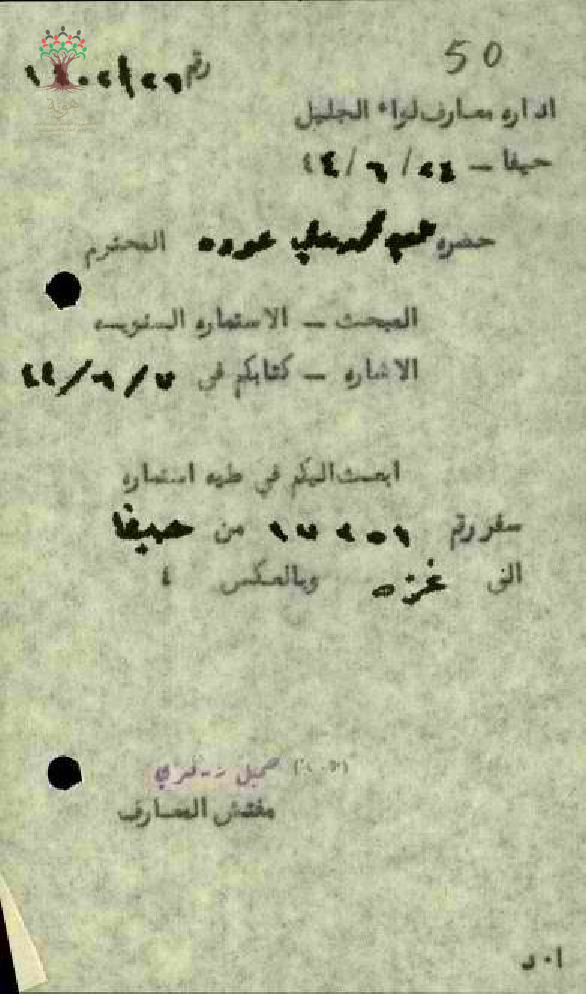 50
رقم
اداره معارف لواء الجليل
حيفا – ٢٤/٦/٤٤
حضره علي عوده المحترم
المبحث – الاستماره السنويه
الاشاره – كتابكم في ٧/٦/٤٤
ابعث اليكم في طيه استماره
سفر رقم من حيفا
الى غزه وبالعكس ٤
مفتش المعارف
٠١ د